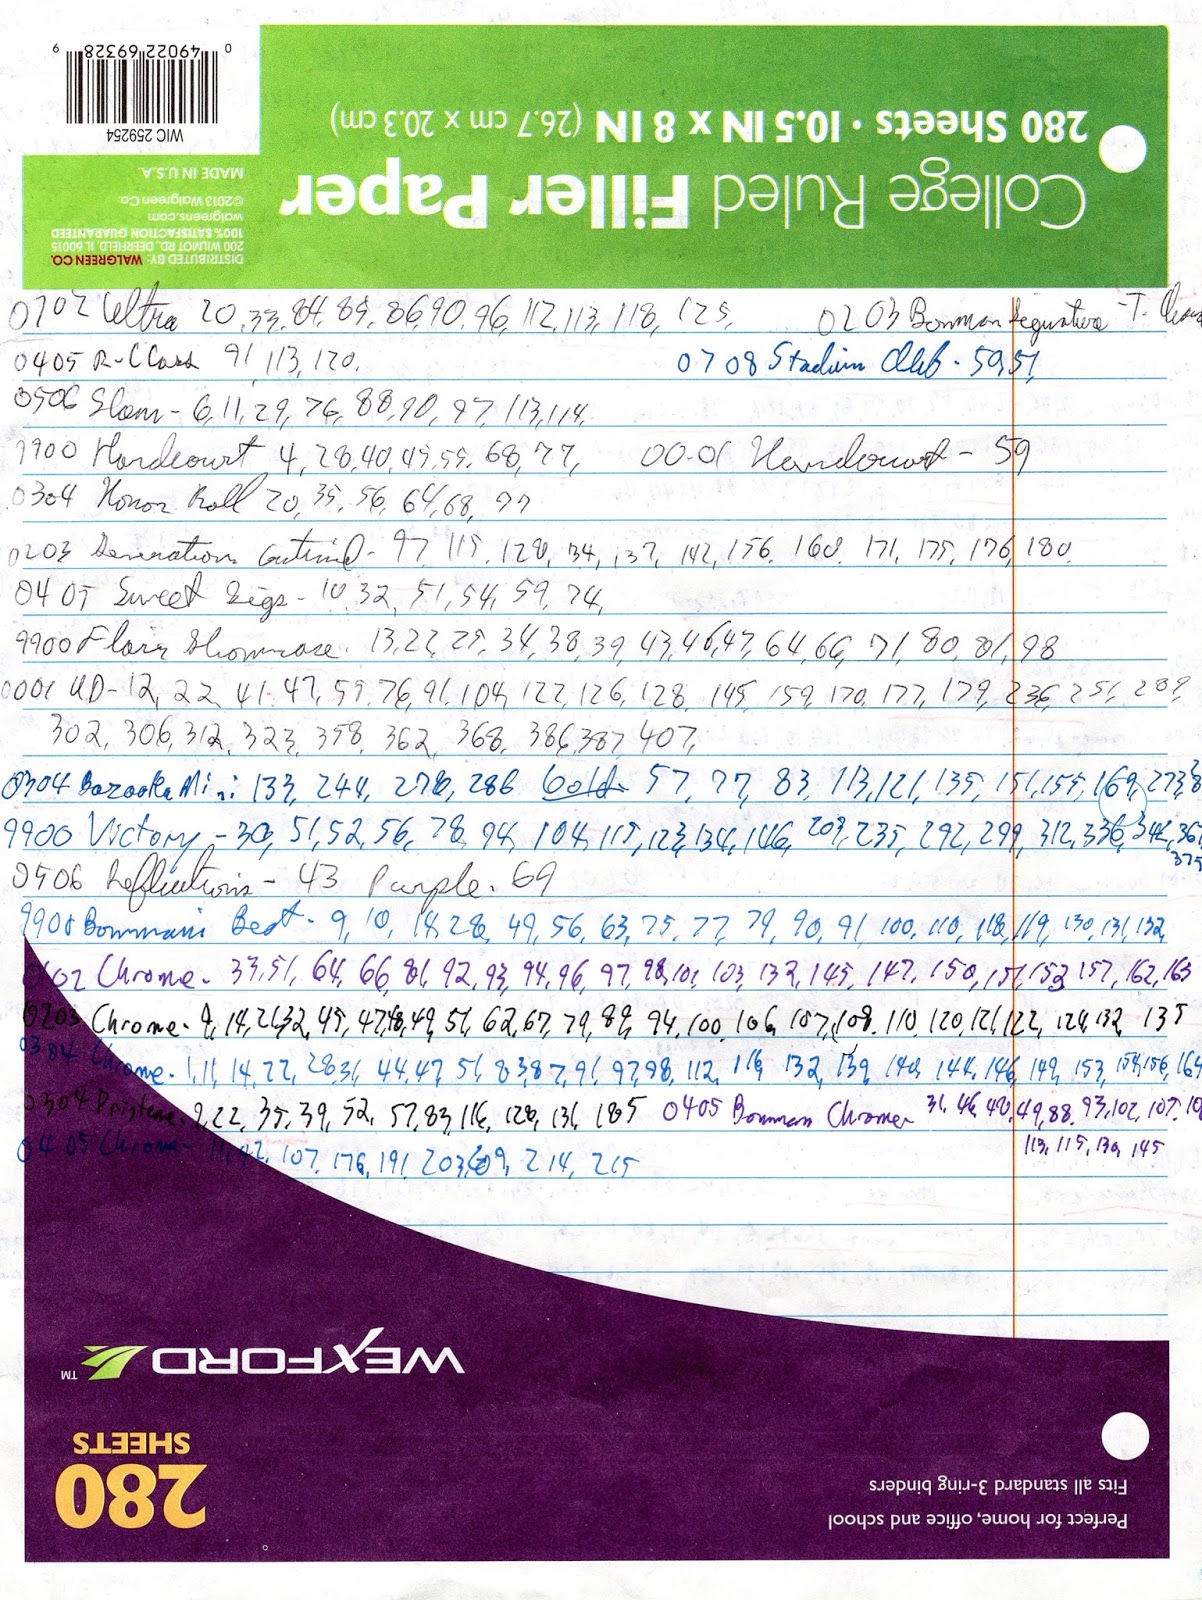 0 49022 69328 9
WIC 259254
280 Sheets · 10.5 IN x 8 IN (26.7 cm x 20.3 cm)
College Ruled Filler Paper
MADE IN U.S.A.
©2013 Walgreen Co.
walgreens.com
100% SATISFACTION GUARANTEED
200 WILMOT RD., DEERFIELD, IL 60015
DISTRIBUTED BY: WALGREEN CO.
0102 Ultra 20, 33, 84, 85, 86, 90, 96, 112, 113, 118, 125, 0203 Bowman Signature - T.
0405 R-Class 91, 113, 120. 0708 Stadium Club - 50, 51,
0506 Slam - 6, 11, 29, 76, 88, 90, 97, 113, 114,
9900 Hardcourt 4, 28, 40, 49, 55, 68, 77, 00-01 Hardcourt - 59
0304 Honor Roll 20, 35, 56, 64, 68, 77
0203 Generation - 97, 115, 128, 134, 137, 142, 156, 160, 171, 175, 176, 180.
0405 Sweet Sigs - 10, 32, 51, 54, 59, 74,
9900 Flair Showcase. 13, 22, 25, 34, 38, 39, 43, 46, 47, 64, 66, 71, 80, 81, 98
0001 UD - 12, 22, 41, 47, 59, 76, 91, 104, 122, 126, 128, 145, 159, 170, 177, 179, 236, 251, 289,
302, 306, 312, 323, 358, 362, 368, 386, 387, 407,
0304 Bazooka Mini: 133, 244, 276, 286 Gold - 57, 77, 83, 113, 121, 135, 151, 155, 169, 273,
9900 Victory - 30, 51, 52, 56, 78, 94, 104, 115, 123, 134, 146, 209, 235, 292, 299, 312, 336, 342, 367
375
0506 Reflections - 43 Purple - 69
9900 Bowman's Best - 9, 10, 14, 28, 49, 56, 63, 75, 77, 79, 90, 91, 100, 110, 118, 119, 130, 131, 132,
0102 Chrome - 33, 51, 64, 66, 81, 92, 93, 94, 96, 97, 98, 101, 103, 132, 145, 147, 150, 151, 152, 157, 162, 163
0203 Chrome - 9, 14, 21, 32, 45, 47, 48, 49, 51, 62, 67, 79, 89, 94, 100, 106, 107, 108, 110, 120, 121, 122, 124, 132, 135
0304 Chrome - 1, 11, 14, 22, 28, 31, 44, 47, 51, 83, 87, 91, 97, 98, 112, 116, 132, 139, 140, 144, 146, 149, 153, 154, 156, 164
0304 Pristine - 9, 22, 35, 39, 52, 57, 83, 116, 128, 131, 185 0405 Bowman Chrome 31, 46, 48, 49, 88, 93, 102, 107,
113, 115, 139, 145
0405 Chrome - 11, 42, 107, 176, 191, 203, 209, 214, 215
WEXFORD™
280
SHEETS
Fits all standard 3-ring binders
Perfect for home, office and school